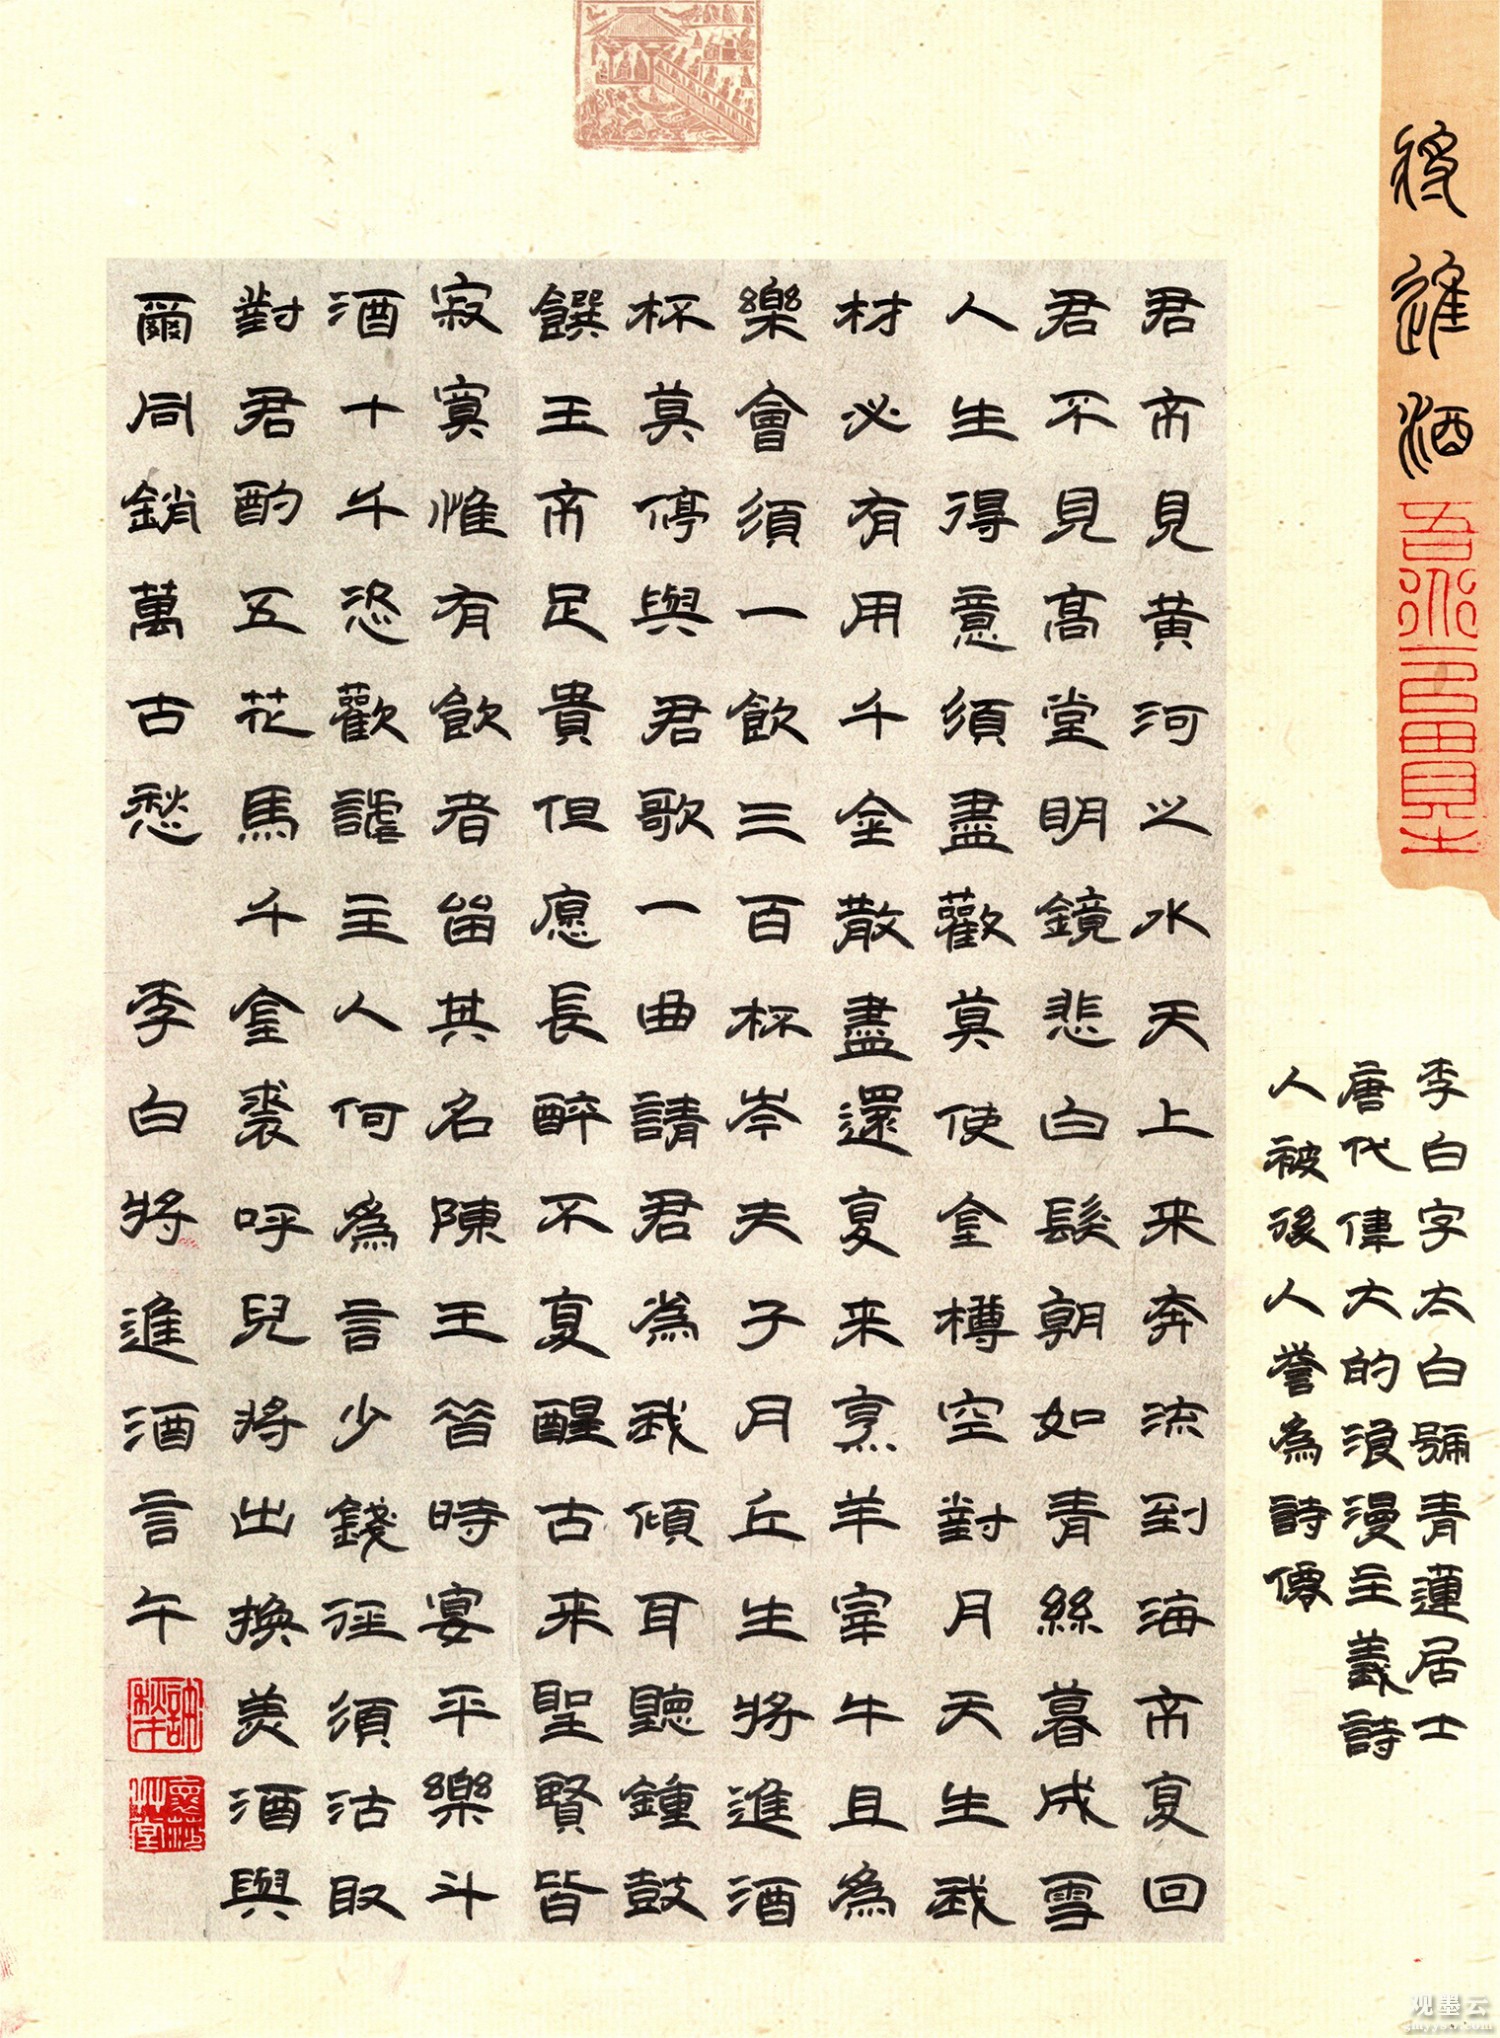 將進酒
李白字太白號青蓮居士
唐代偉大的浪漫主義詩
人被後人譽為詩僊
君不見黄河之水天上来奔流到海不复回
君不見高堂明鏡悲白髮朝如青絲暮成雪
人生得意須盡歡莫使金樽空對月天生我
材必有用千金散盡還复来烹羊宰牛且為
樂會須一飲三百杯岑夫子月丘生將進酒
杯莫停與君歌一曲請君為我傾耳聽鍾鼓
饌玉不足貴但愿長醉不复醒古来聖賢皆
寂寞惟有飲者留其名陳王昔時宴平樂斗
酒十千恣歡謔主人何為言少錢徑須沽取
對君酌五花馬千金裘呼兒將出換美酒與
爾同銷萬古愁 李白將進酒言午
观墨云